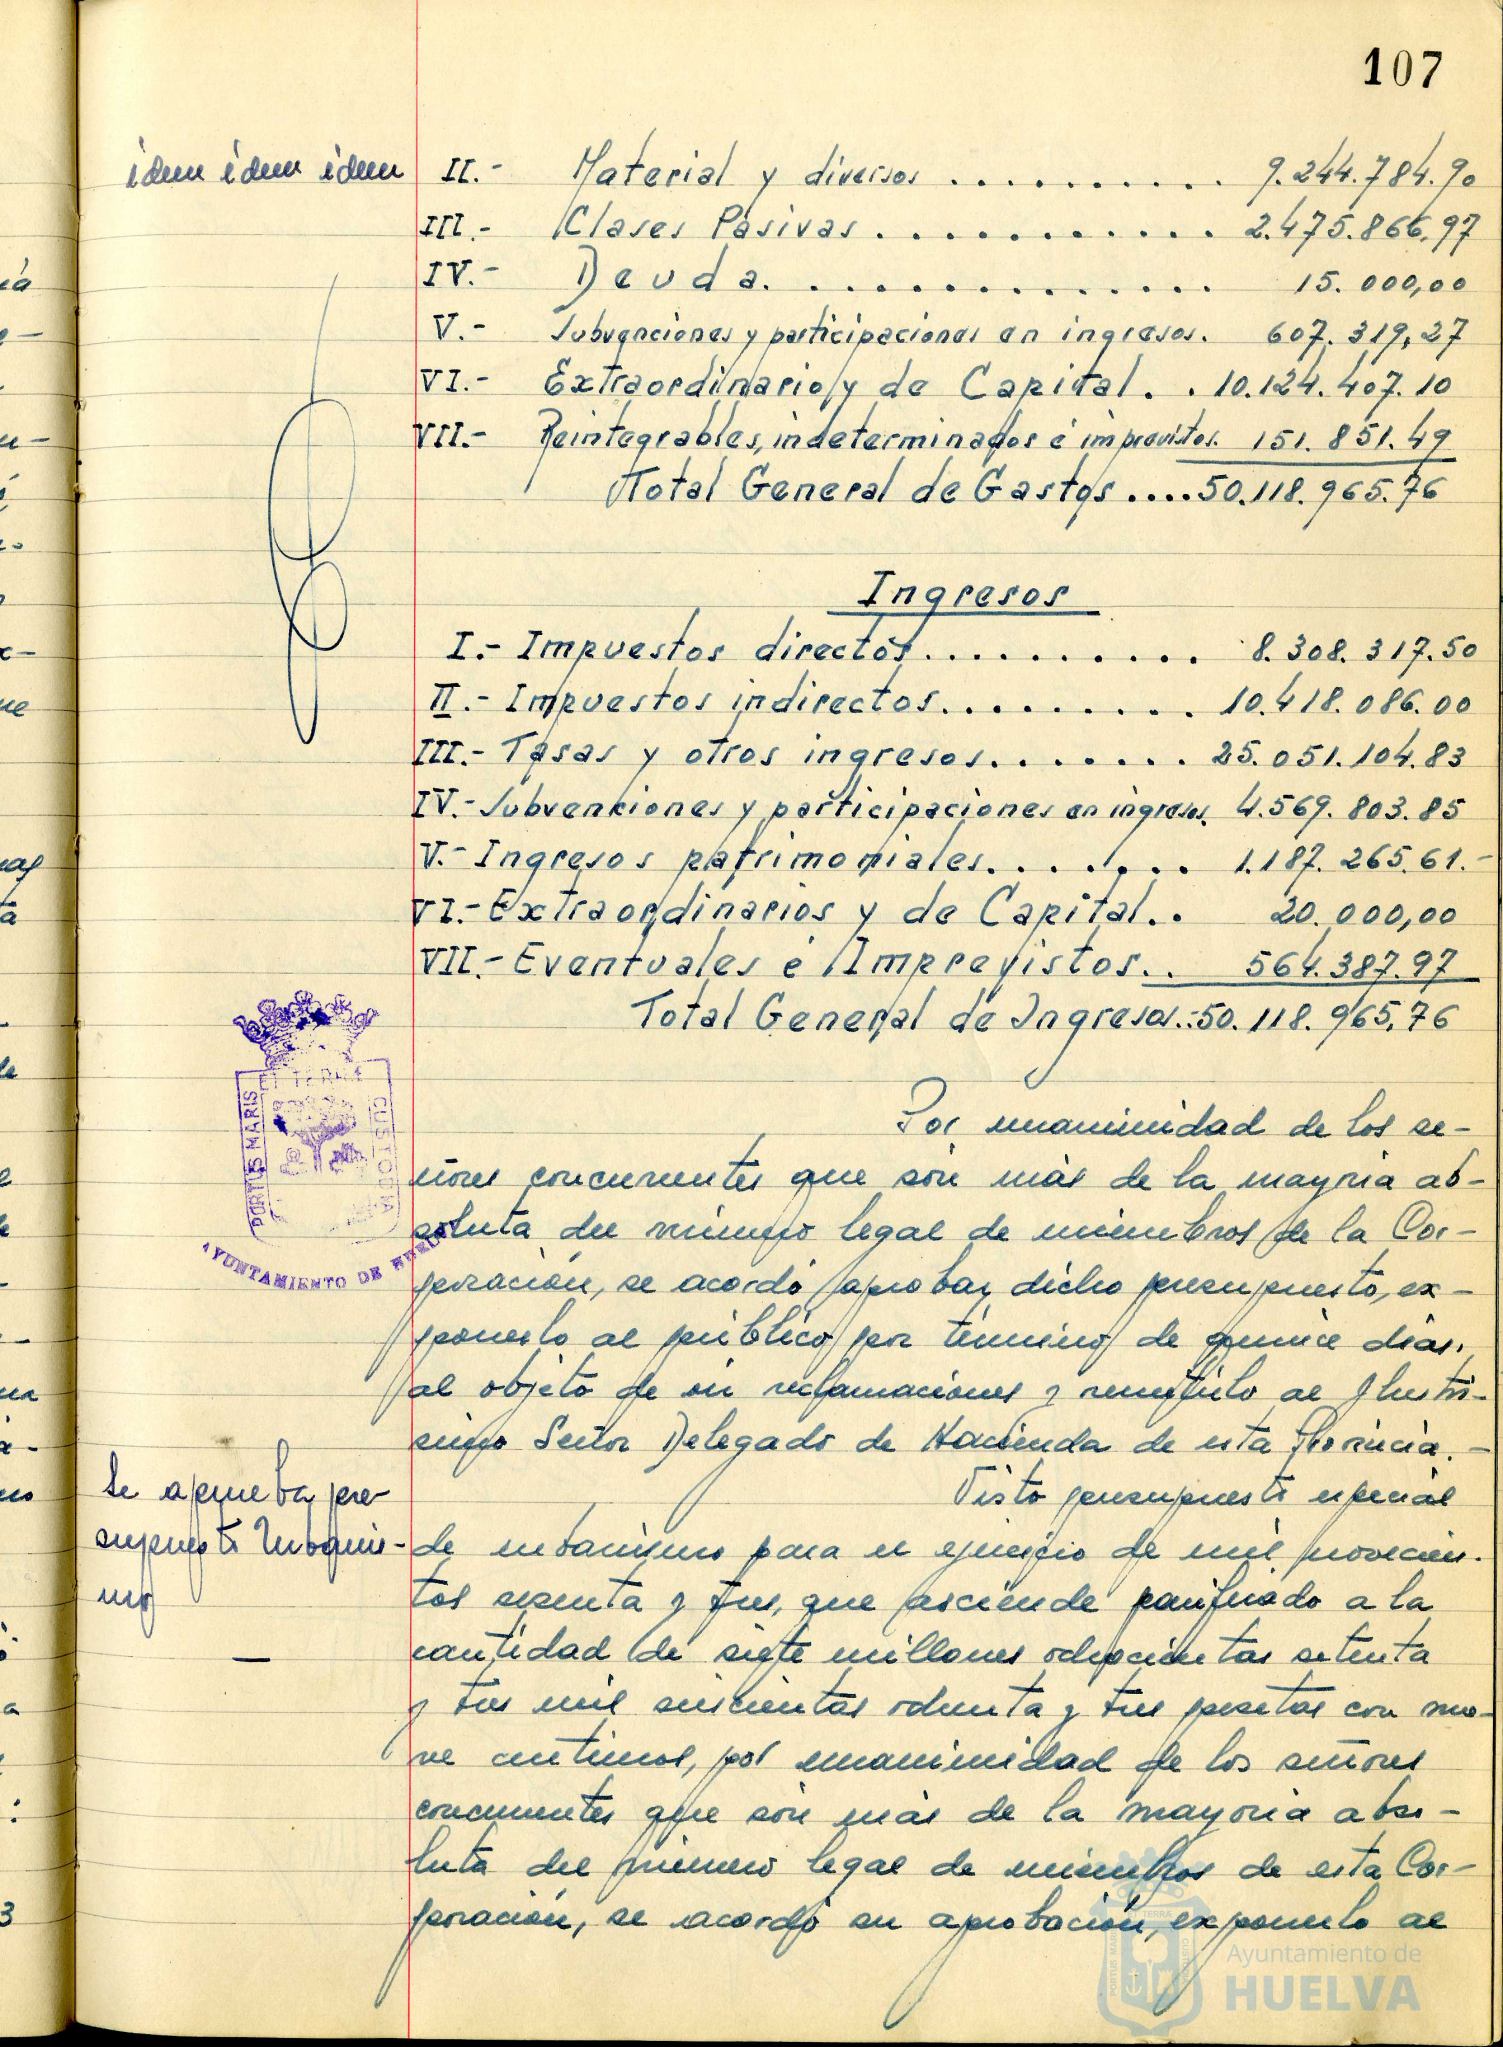 107
idem idem idem
II.- Material y diversos .......... 9.244.784.90
III.- Clases Pasivas ........... 2.475.866,97
IV.- Deuda. ............. 15.000,00
V.- Subvenciones y participaciones en ingresos. 607.319,27
VI.- Extraordinario y de Capital. . 10.124.407.10
VII.- Reintegrables, indeterminados é imprevistos. 151.851.49
Total General de Gastos .... 50.118.965.76
Ingresos
I.- Impuestos directos .......... 8.308.317.50
II.- Impuestos indirectos ......... 10.418.086.00
III.- Tasas y otros ingresos ....... 25.051.104.83
IV.- Subvenciones y participaciones en ingresos. 4.569.803.85
V.- Ingresos patrimoniales ....... 1.187.265.61.-
VI.- Extraordinarios y de Capital.. 20.000,00
VII.- Eventuales é Imprevistos.. 564.387.97
Total General de Ingresos.: 50.118.965,76
PORTUS MARIS ET TERRÆ CUSTODIA
AYUNTAMIENTO DE HUELVA
Por unanimidad de los se-
ñores concurrentes que son más de la mayoria ab-
soluta del número legal de miembros de la Cor-
poración, se acordó aprobar dicho presupuesto, ex-
ponerlo al público por término de quince dias,
al objeto de oir reclamaciones y remitirlo al Ilustri-
simo Señor Delegado de Hacienda de esta Provincia.-
Se aprueba pre-
supuesto Urbanis-
mo
Visto presupuesto especial
de urbanismo para el ejercicio de mil novecien-
tos sesenta y tres, que asciende a la
cantidad de siete millones ochocientas setenta
y tres mil seiscientas ochenta y tres pesetas con nue-
ve centimos, por unanimidad de los señores
concurrentes que son más de la mayoria abso-
luta del número legal de miembros de esta Cor-
poración, se acordó su aprobación, exponerlo al
Ayuntamiento de
HUELVA